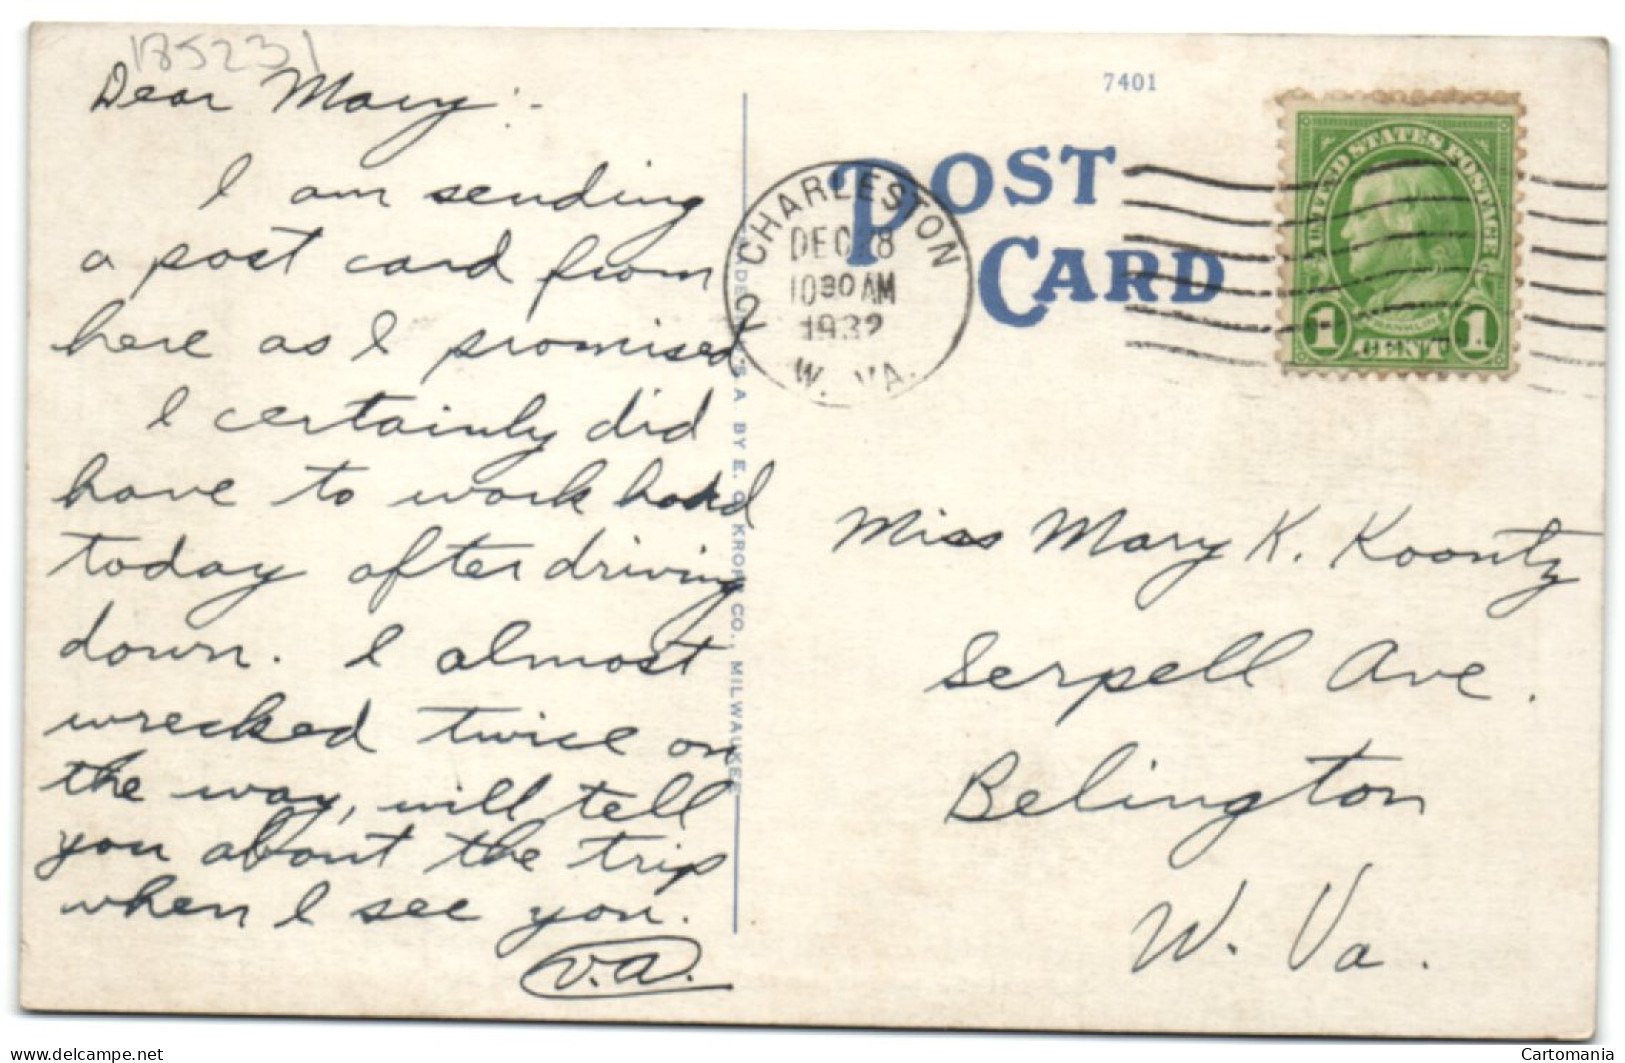 185231
Dear Mary:-
I am sending
a post card from
here as I promised
I certainly did
have to work hard
today after driving
down. I almost
wrecked twice on
the way, will tell
you about the trip
when I see you.
V.A.
MADE IN U.S.A. BY E. C. KROPP CO., MILWAUKEE
7401
POST
CARD
CHARLESTON
DEC 28
10 30 AM
1932
W. VA.
UNITED STATES POSTAGE
FRANKLIN
1 CENT 1
Miss Mary K. Koontz
Serpell Ave.
Belington
W. Va.
www.delcampe.net
Cartomania